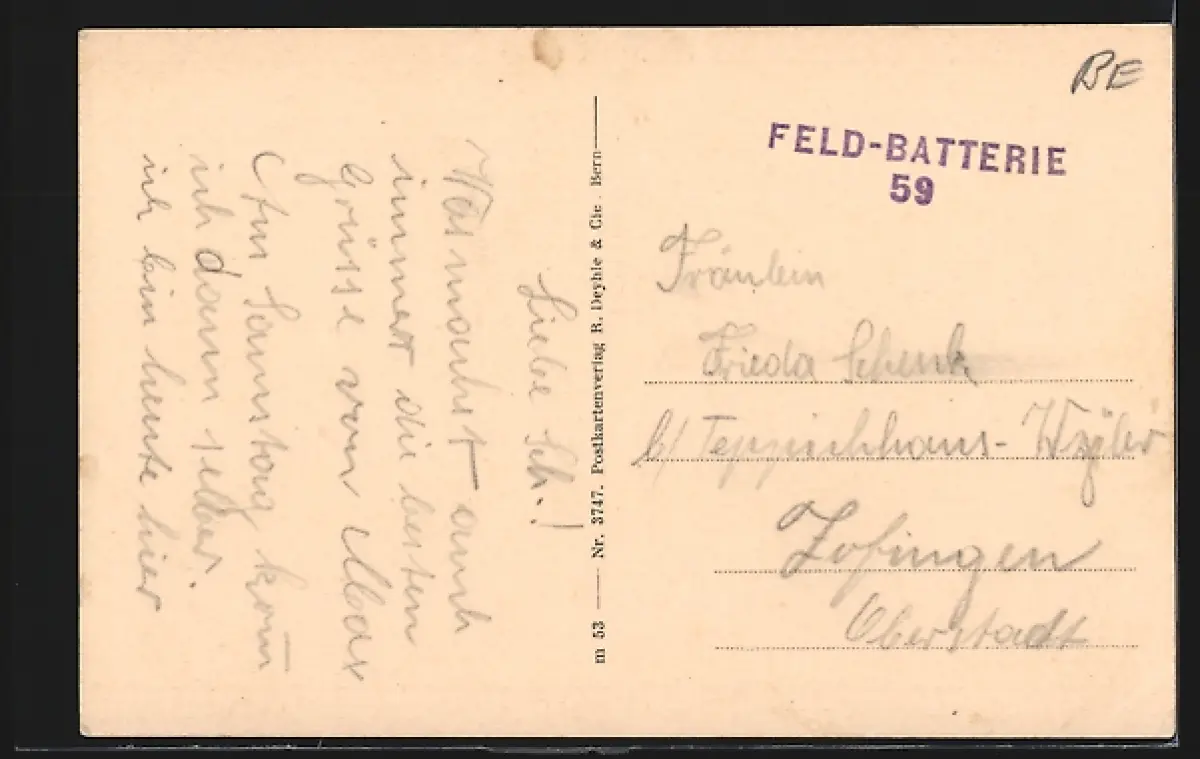 Liebe Sch.!
Was machst auch
immer die besten
Grüsse von Max
Am Samstag kom̄
ich dann selber.
ich bin heute hier
m 53 —— Nr. 3747. Postkartenverlag R. Deyhle & Cie. Bern
BE
FELD-BATTERIE
59
Fräulein
Frieda Schenk
b/ Teppichhaus-
Zofingen
Oberstadt